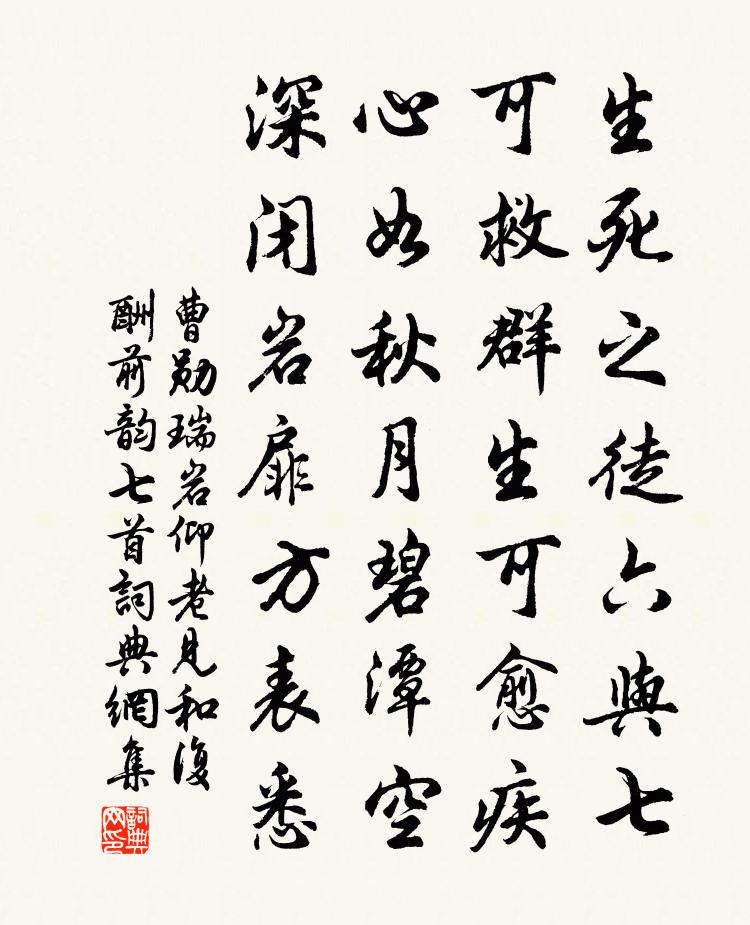 生死之徒六與七
可救群生可愈疾
心如秋月碧潭空
深闭岩扉方表悉
曹勛瑞岩仰老見和復
酬前韵七首詞典網集
詞典網印